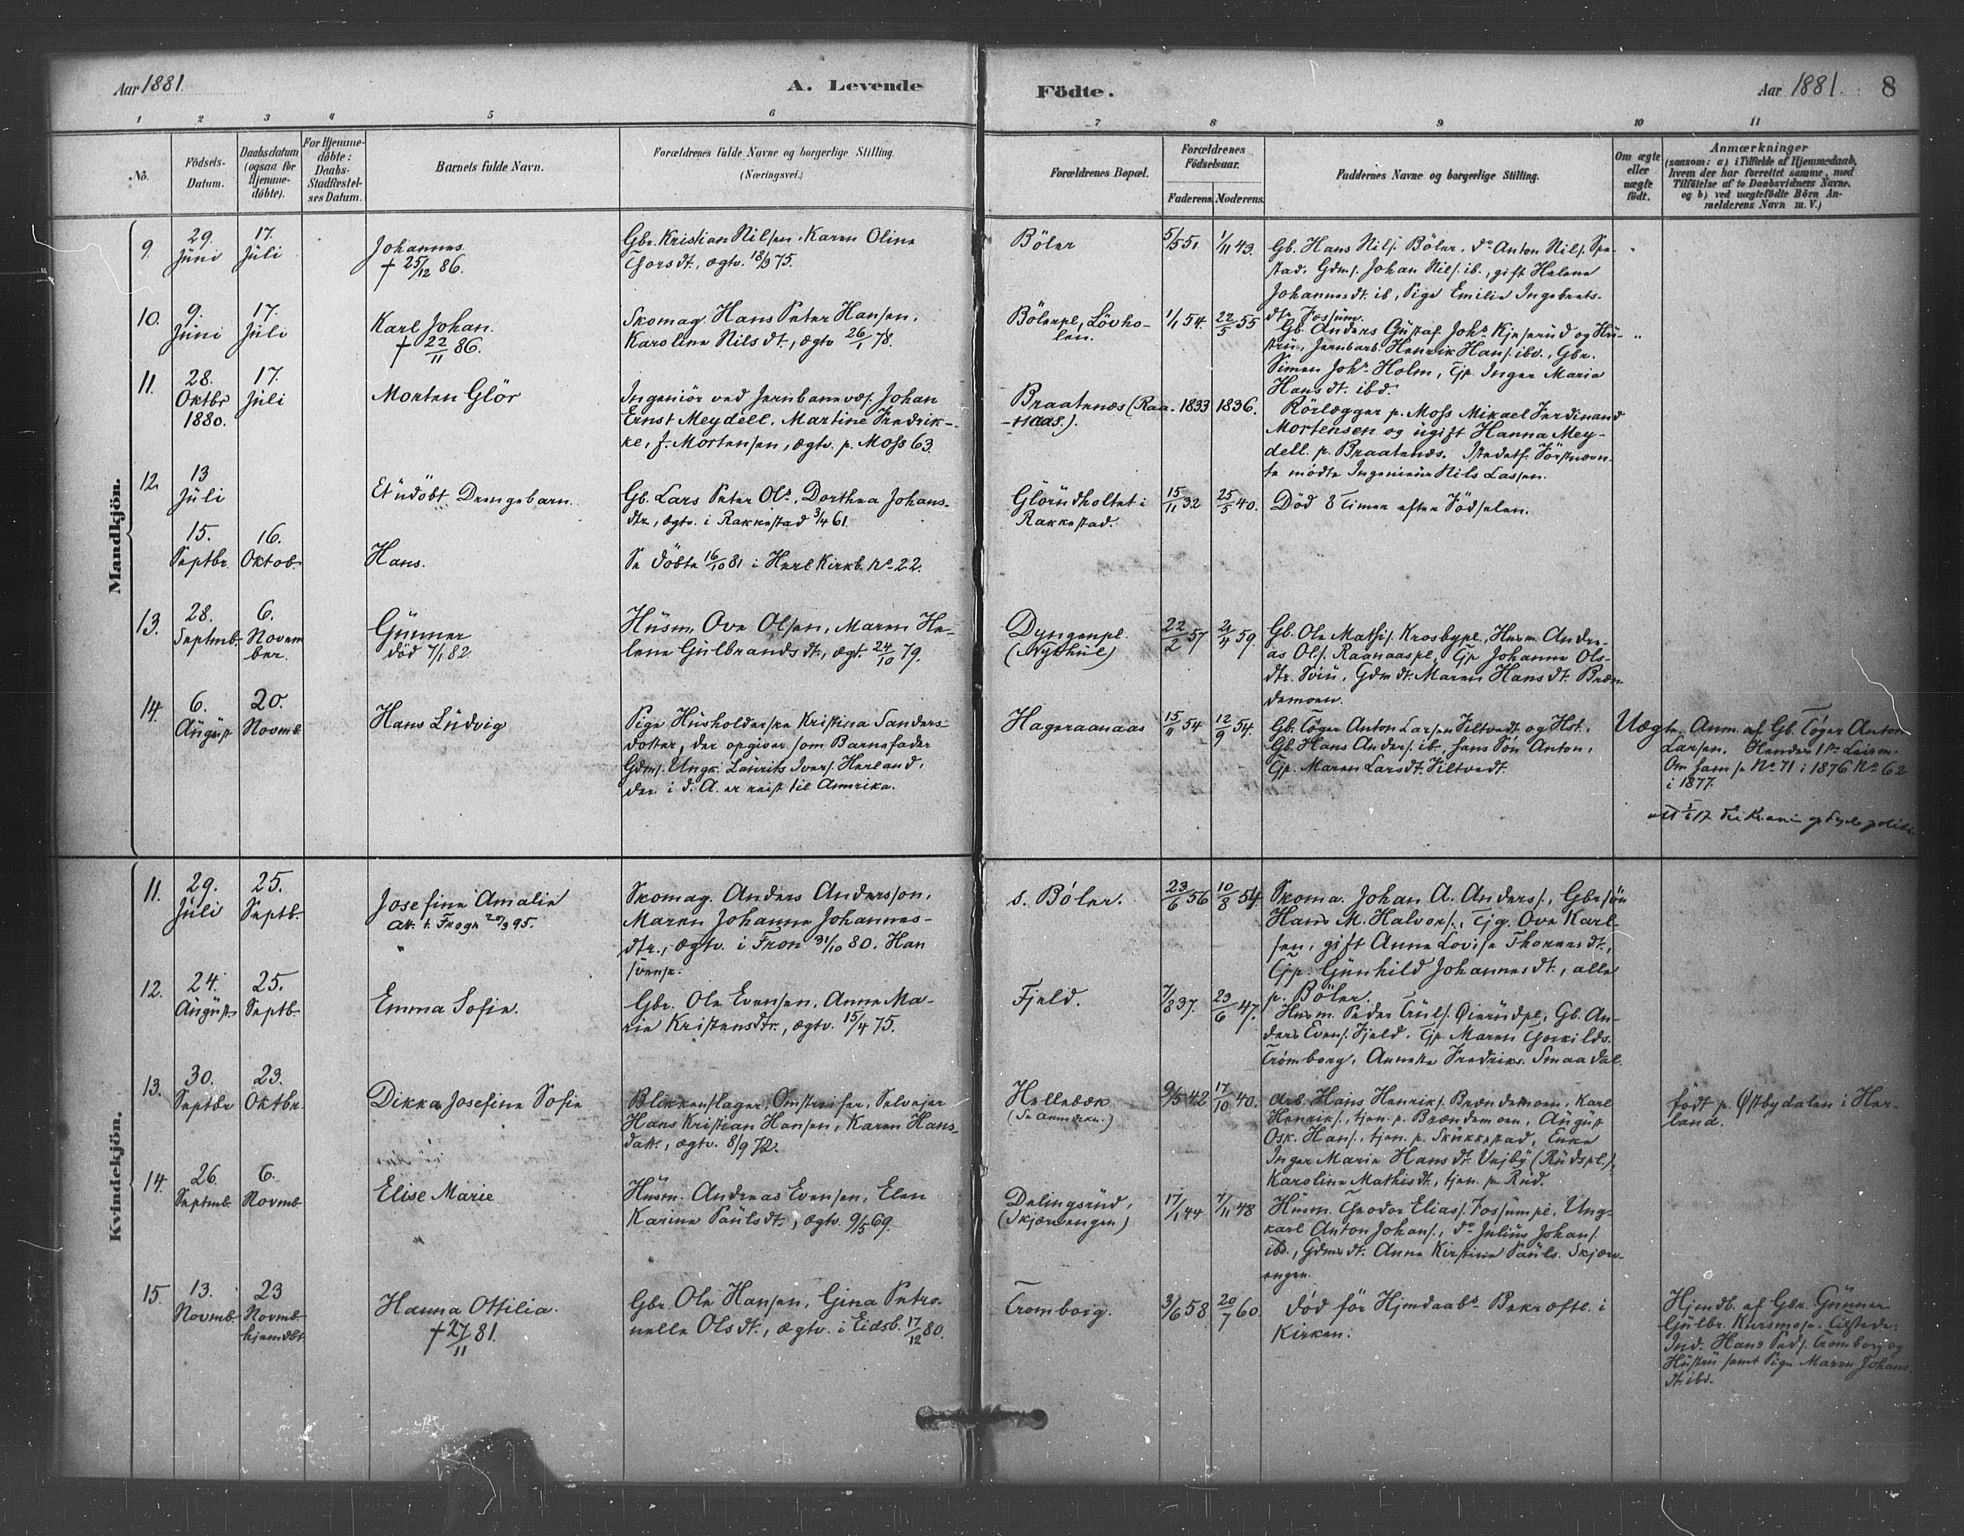 Aar 1881.
A. Levende
Födte.
Aar 1881.
8
1 2 3 4 5 6 7 8 9 10 11
No.
Födsels-
Datum.
Daabsdatum
(ogsaa for
Hjemme-
döbte).
For Hjemme-
döbte:
Daabs-
Stadfæstel-
ses Datum.
Barnets fulde Navn.
Forældrenes fulde Navne og borgerlige Stilling.
(Næringsvei.)
Forældrenes Bopæl.
Forældrenes
Födselsaar.
Faderens Moderens.
Faddernes Navne og borgerlige Stilling.
Om ægte
eller
uægte
født.
Anmærkninger
(saasom: a) i Tilfælde af Hjemmedaab,
hvem der har forrettet samme, med
Tilføielse af to Daabsvidners Navne,
og b) ved uægtefødte Börn An-
melderens Navn m. V.)
Mandkjön.
9.
29.
Juni
17.
Juli
Johannes
† 25/12 86.
Gbr. Kristian Nilsen. Karen Oline
Thorsdt, ægtv. 18/9 75.
Böler
5/5 51
1/11 43.
Gb. Hans Nils. Böler. do Anton Nils. Spe-
stad. Gdms. Johan Nils. ib., gift Helene
Johannesdt ib, Pige Emilie Ingebrets-
dtr Fossum.
10.
9.
Juni
17.
Juli
Karl Johan.
† 22/11 86.
Skomag. Hans Peter Hansen.
Karoline Nilsdt., ægtv 26/1 78.
Bölerpl, Lövho-
len.
1/1 54.
22/5 55
Gb. Anders Gustaf Johs Kjeserud og Hu-
stru, Jernbarb. Henrik Hans. ibd., Gbr.
Simen Johs Holm, Tjp. Inger Maria
Hansdt. ibd.
11.
28.
Oktbr
1880.
17.
Juli
Morten Glör
Ingeniör ved Jernbanevæs. Johan
Ernst Meydell. Martine Fredrik-
ke, f. Mortensen, ægtv. p. Moss 63.
Braatenæs (Raa-
naas).
1833
1836.
Rörlægger p. Moss Mikael Ferdinand
Mortensen og ugift Hanna Mey-
dell p. Braatenæs. Istedetf. Förstnævn-
te mödte Ingeniör Nils Lassen.
12.
13
Juli
Et udöbt Drengebarn.
Gb. Lars Peter Ols. Dorthea Johans-
dtr, ægtv. i Rakkestad 3/4 61.
Glörudholtet i
Rakkestad.
15/11 32
25/5 40.
Död 8 Timer efter Födselen.
15.
Septbr.
16.
Oktob.
Hans.
Se döbte 16/10 81 i Herl Kirkb. No 22.
13.
28.
Septmb.
6.
Novem
ber.
Gunner
död 7/1 82.
Husm. Ove Olsen, Maren He-
lene Gulbrandsdt., ægt. 24/10 79.
Dyngenpl.
(Nythul)
22/2 57
2/4 59.
Gb. Ole Mathis. Krosbypl, Husm. Andre-
as Ols. Raanaaspl, Tjp Johanne Ols-
dtr. Sviu, Gdmdt. Maren Hansdt. Bræn-
demoen.
14.
6.
August
20.
Novmb.
Hans Ludvig
Pige Husholderske Kristina Sanders-
datter, der opgiver som Barnefader
Gdms. Ungk. Laurits Ivers. Herland,
der i d. A. er reist til Amerika.
Hageraanaas
15/11 54
12/9 54.
Gb. Töger Anton Larsen Tiltvedt og Hst.
Gb. Hans Anders. ib., hans Sön Anton,
Tjp. Maren Larsdt. Tiltvedt.
Uægte.
Anm. af Gb. Töger Anton
Larsen. Hendes 1ste Leierm.
Om ham se No 71 i 1876 No 62
i 1877.
Kvindekjön.
11.
29.
Juli
25.
Septb.
Josefine Amalie
att. t. Frogn 20/3 95.
Skomag. Anders Andersson.
Maren Johanne Johannes-
dtr., ægtv. i Fron 31/10 80. Han
svensk.
s. Böler.
23/6 56
10/8 54.
Skoma. Johan A. Anders., Gbrsön
Hans M. Halvors., Tjg. Ove Karl-
sen, gift Anne Lovise Thoresdt,
Tjp. Gunhild Johannesdt., alle
p. Böler.
12.
24.
August
25.
Septb.
Emma Sofie.
Gbr. Ole Evensen, Anne Ma-
rie Kristensdtr., ægtv. 15/4 75.
Fjeld.
7/8 37.
23/6 47.
Husm. Peder Truls. Öierudpl., Gb. An-
ders Evens. Fjeld. Tjp. Maren Thorkilds.
Trömborg, Anneke Fredriks. Smaadal.
13.
30.
Septbr
23.
Oktbr.
Dikka Josefine Sofie
Blikkenslager, Omstreifer, Selveier
Hans Kristian Hansen, Karen Hans-
datt., ægtv. 8/9 72.
Hellebæk
(Se Anmærkn.)
9/5 42
17/10 40.
Arb. Hans Henriks. Brændemoen, Karl
Henriks., tjen. p. Brændemoen, August
Osk. Hans., tjen. p. Skukkestad, Enke
Inger Marie Hansdt. Vejby (Rudspl.),
Karoline Mathisdt., tjen. p. Rud.
födt p. Østbydalen i Her-
land.
14.
26.
Septmb.
6.
Novmb.
Elise Marie
Husm. Andreas Evensen, Elen
Karine Paulsdt., ægtv. 9/5 69.
Delingsrud,
(Skjærengen)
17/1 44
7/11 48
Husm. Theodor Elias. Fossumpl, Ung-
karl Anton Johans., do Julius Johans.
ibd., Gdmsdt. Anne Kirstine Pauls. Skjær-
engen.
15.
13.
Novmb.
23
Novmb.
hjemdbt
Hanna Ottilia.
† 27/11 81.
Gbr. Ole Hansen, Gina Petro-
nelle Olsdt., ægtv. i Eidsb. 17/12 80.
Tromborg.
3/6 58
20/7 60.
död för Hjmdaabs Bekræftl. i
Kirken.
Hjmdb. af Gbr. Gunner
Gulbr. Kursmose. Tilstede:
Ind. Hans Peds. Tromborg og
Hustru samt Pige Maren Johans
dt. ibd.